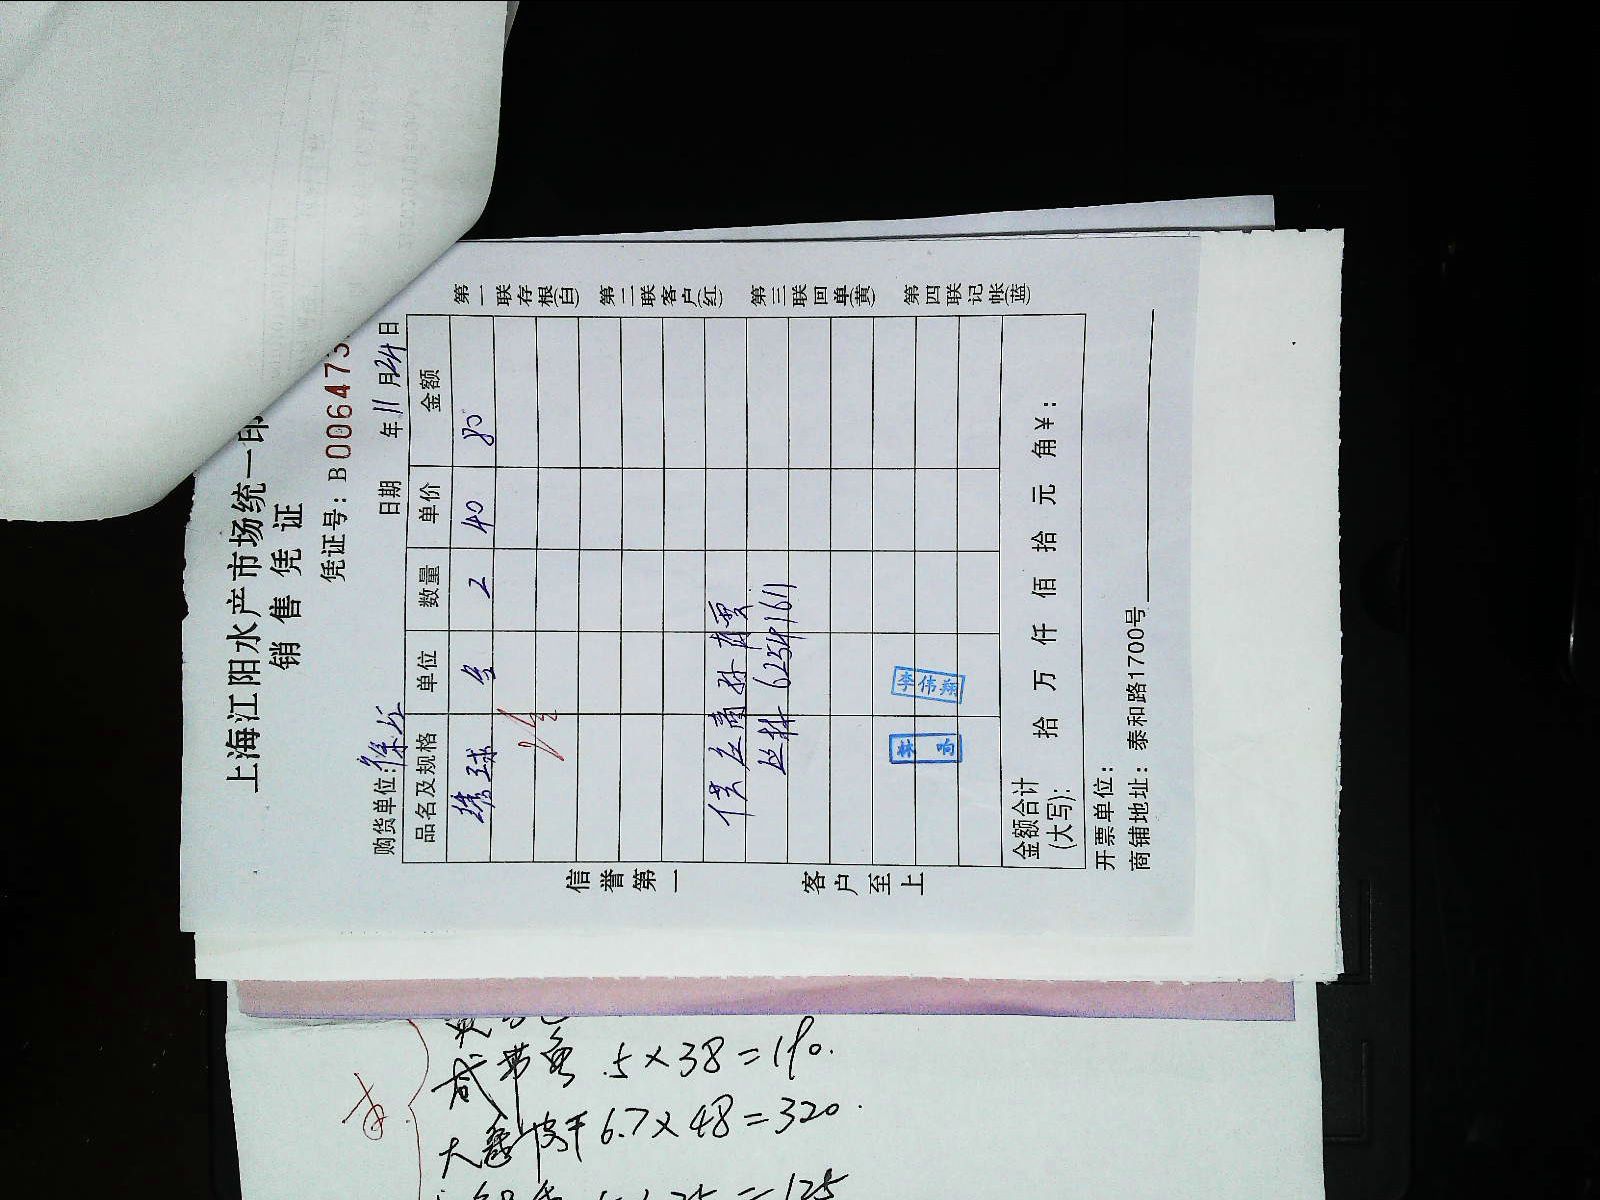 上海江阳水产市场统一印
销售凭证
凭证号：B006473
日期 年 11 月 24 日
购货单位：
品名及规格 单位 数量 单价 金额
2 40 80
供应商孙青雲
6254 1611
林响 李伟翔
金额合计(大写)： 拾 万 仟 佰 拾 元 角￥：
开票单位：
商铺地址：泰和路1700号
信誉第一 客户至上
第一联存根(白) 第二联客户(红) 第三联回单(黄) 第四联记帐(蓝)
带鱼 .5×38=190.
大 6.7×48=320.
=125